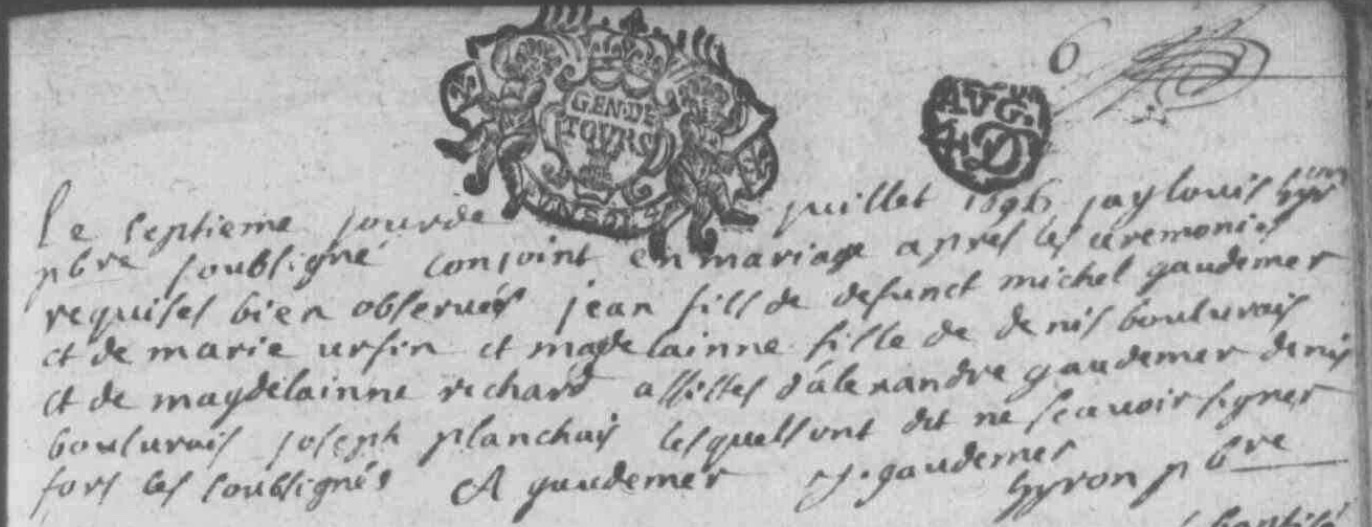 6
GEN·DE
TOURS
AVG.
4 D
Le septieme jour de juillet 1696 jay louis
pbre soubsigné conjoint en mariage apres les ceremonies
requises bien observeés jean fills de defunct michel gaudemer
et de marie ursin et magdelainne fille de denis boulurais
et de magdelainne richard assistes d'alexandre gaudemer denis
boulurais joseph planchais lesquels ont dit ne scavoir signer
fors les soubsignés A gaudemer J. gaudemer
gyron pbre